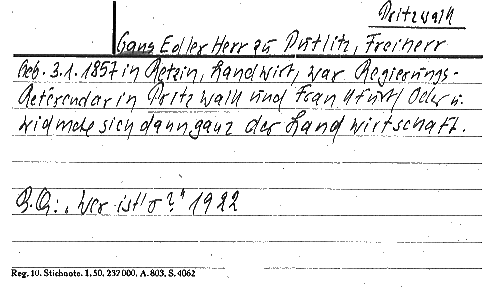 Pritzwalk
Gans Edler Herr zu Putlitz, Freiherr
Geb. 3.1.1857 in Retzin, Landwirt, war Regierungs-
Referendar in Pritzwalk und Frankfurt/Oder u.
widmete sich dann ganz der Landwirtschaft.
B.Q.: "Wer ist's?" 1922
Reg. 10. Stichnote. 1. 50. 232000. A. 803. S. 4062